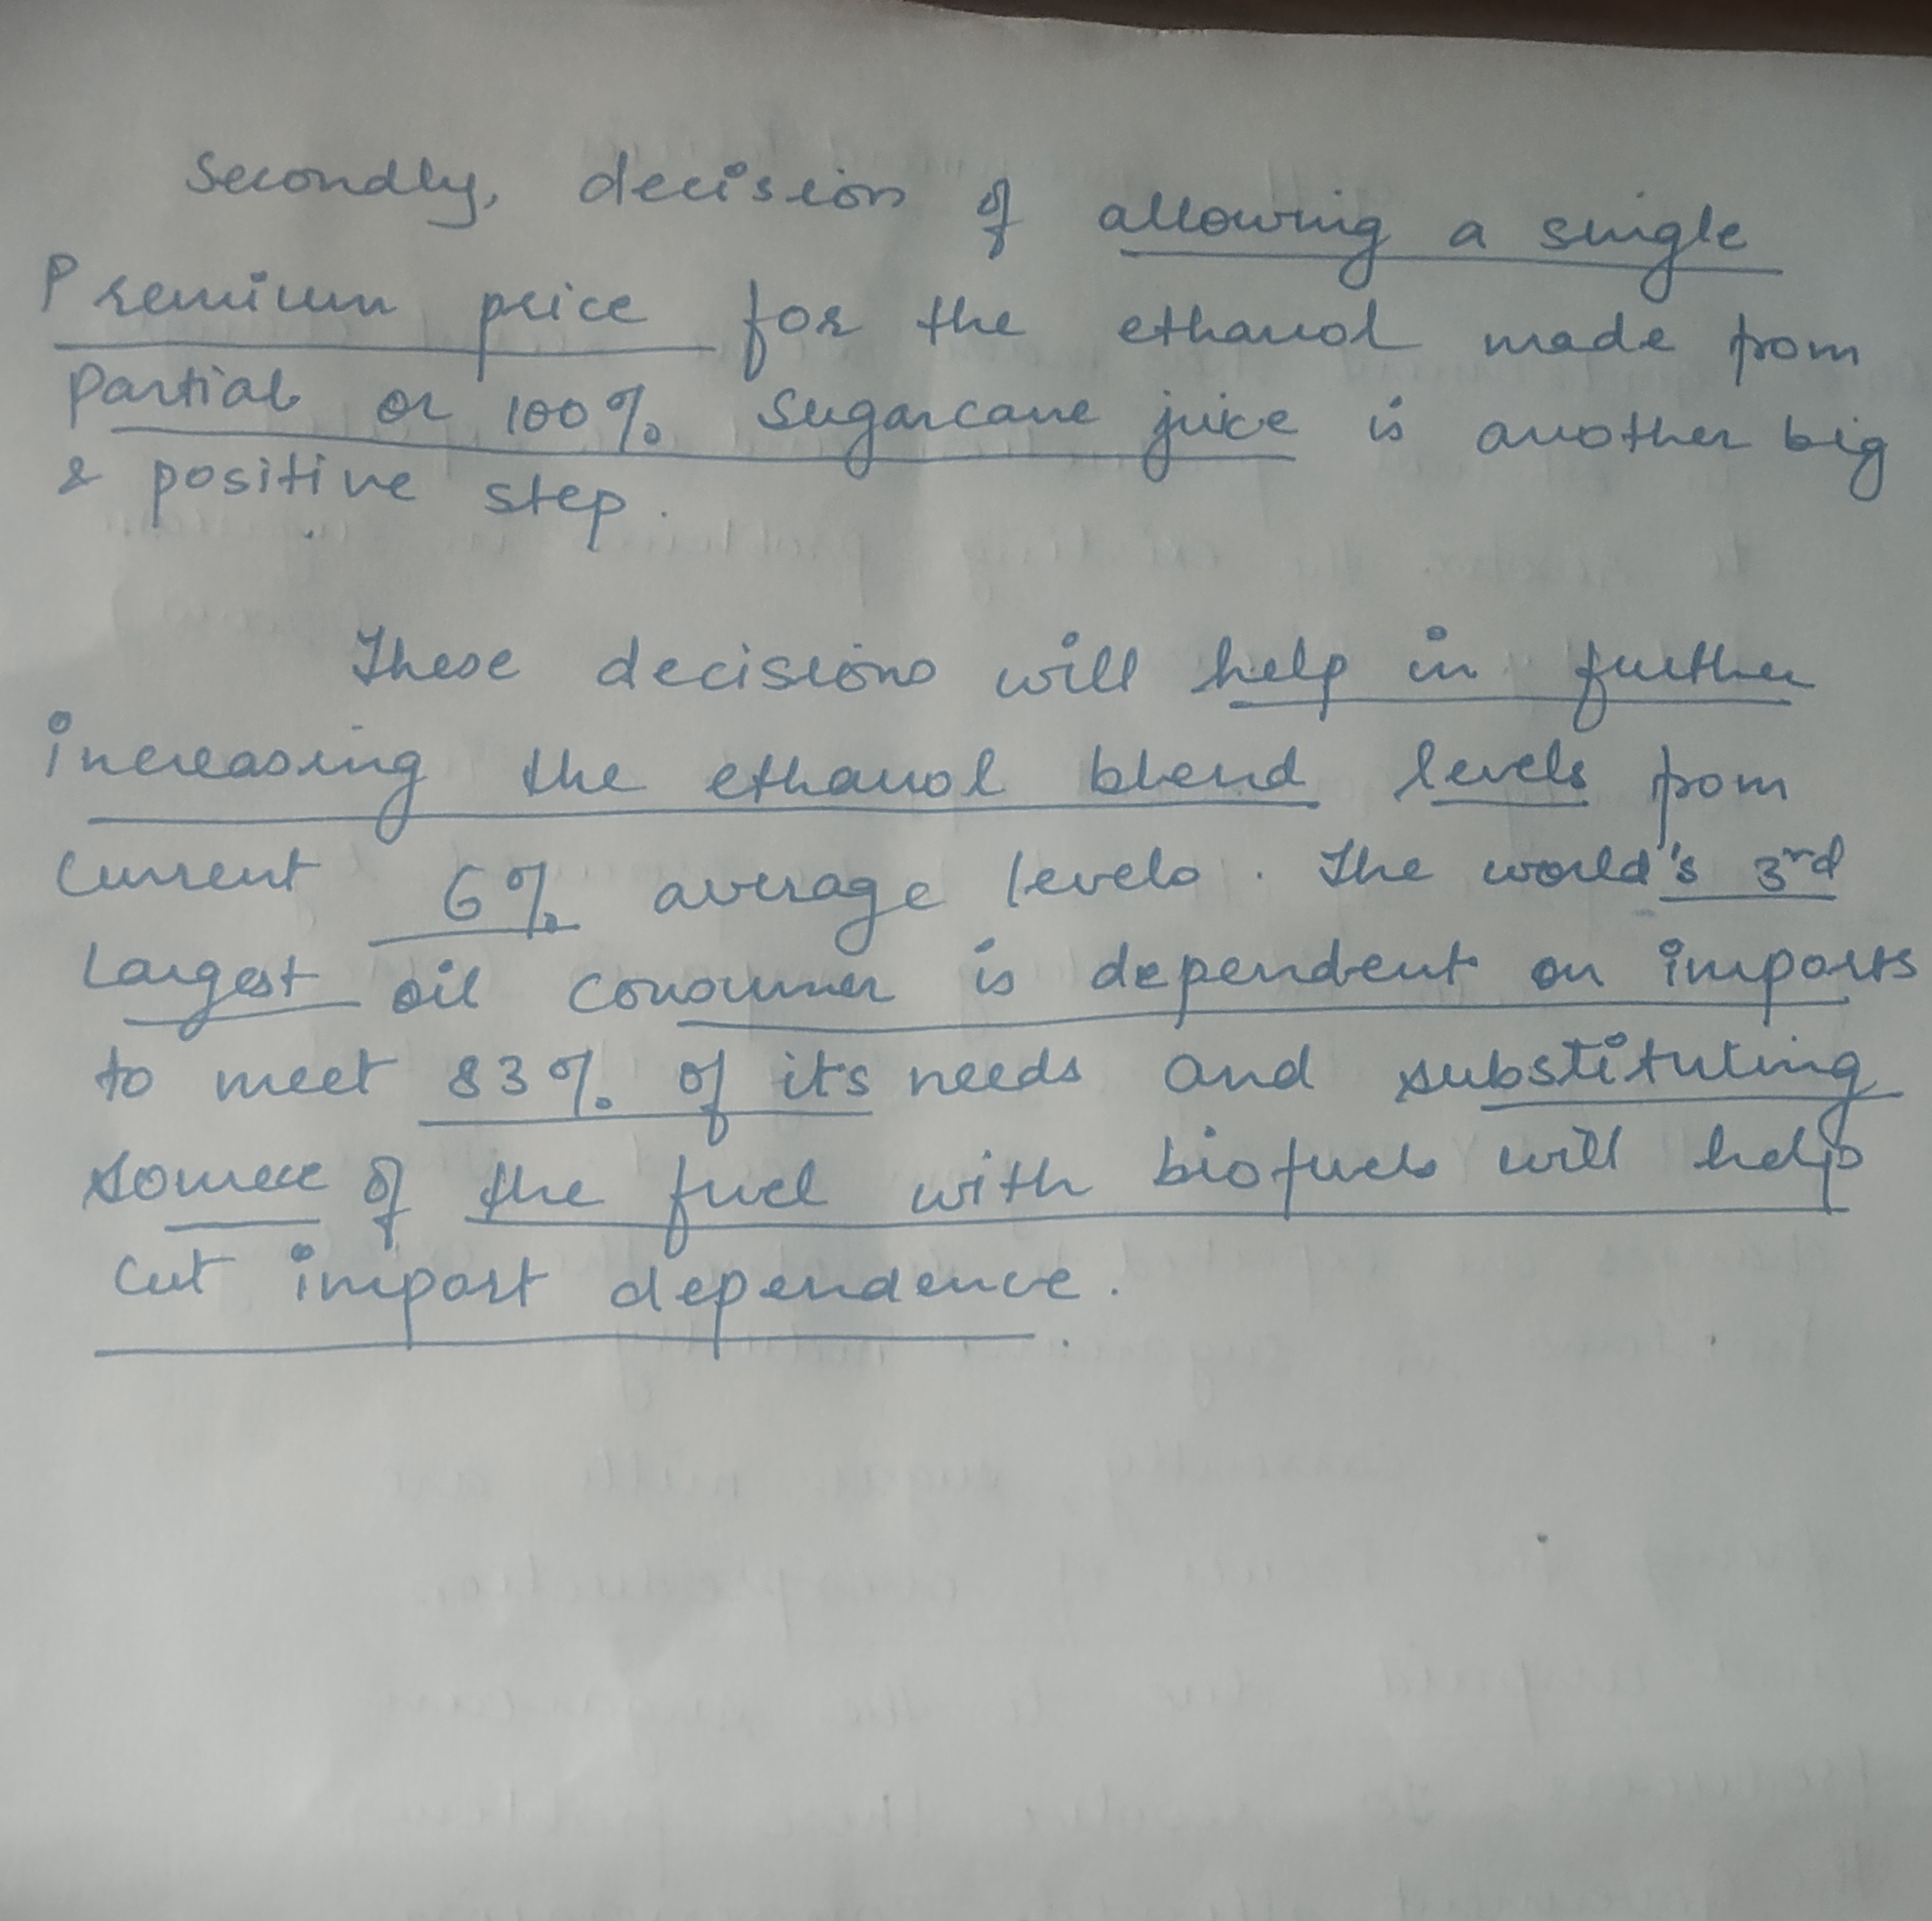 Secondly, decision of allowing a single
Premium price for the ethanol made from
Partial or 100% Sugarcane juice is another big
& positive step.
These decisions will help in further
increasing the ethanol blend levels from
Current 6% average levels. The world's 3rd
Largest oil consumer is dependent on imports
to meet 83% of its needs and substituting
source of the fuel with biofuels will help
cut import dependence.